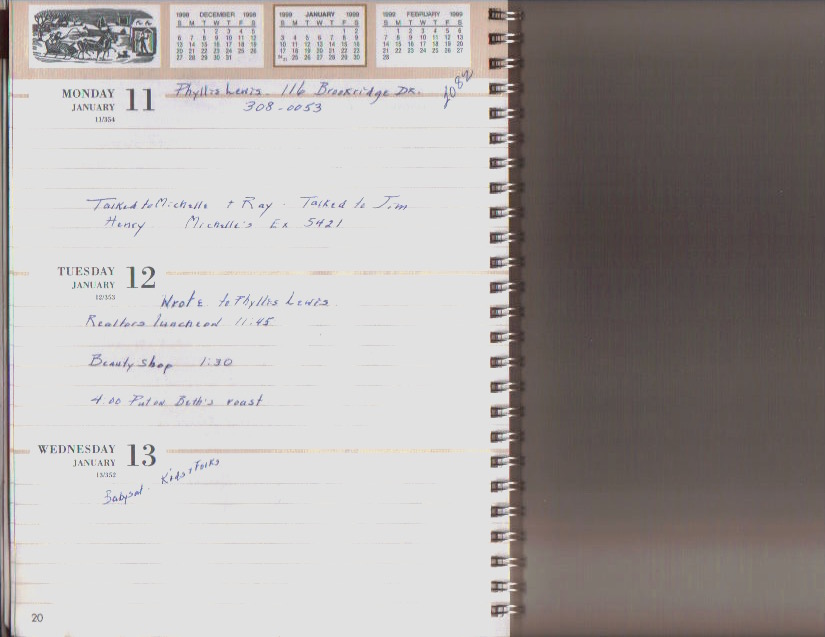 1998 DECEMBER 1998
S M T W T F S
1 2 3 4 5
6 7 8 9 10 11 12
13 14 15 16 17 18 19
20 21 22 23 24 25 26
27 28 29 30 31
1999 JANUARY 1999
S M T W T F S
1 2
3 4 5 6 7 8 9
10 11 12 13 14 15 16
17 18 19 20 21 22 23
24/31 25 26 27 28 29 30
1999 FEBRUARY 1999
S M T W T F S
1 2 3 4 5 6
7 8 9 10 11 12 13
14 15 16 17 18 19 20
21 22 23 24 25 26 27
28
MONDAY 11
JANUARY
11/354
Phyllis Lewis - 116 Brookridge DR.
308-0053
2082
Talked to Michelle + Ray - Talked to Jim
Henry Michelle's Ex 5421
TUESDAY 12
JANUARY
12/353
Wrote to Phyllis Lewis
Realtors luncheon 11:45
Beauty Shop 1:30
4:00 Put on Beth's roast
WEDNESDAY 13
JANUARY
13/352
Babysat - Kids + Folks
20